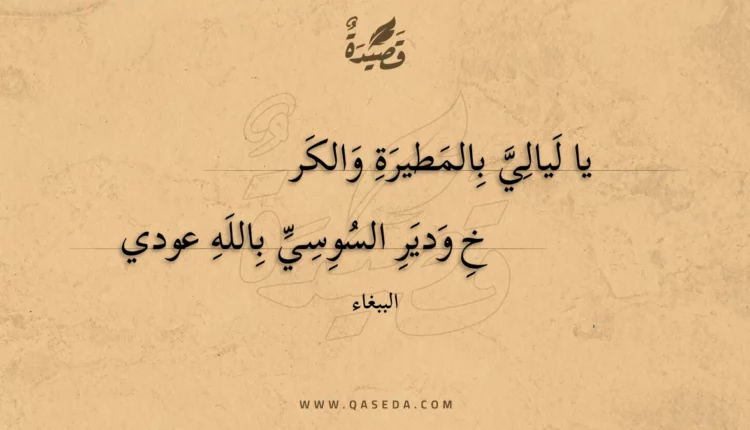 قَصِيْدَةٌ
يا لَيالِيَّ بِالمَطيرَةِ وَالكَر
خِ وَديَرِ السُوِسِيِّ بِاللَهِ عودي
الببغاء
WWW.QASEDA.COM